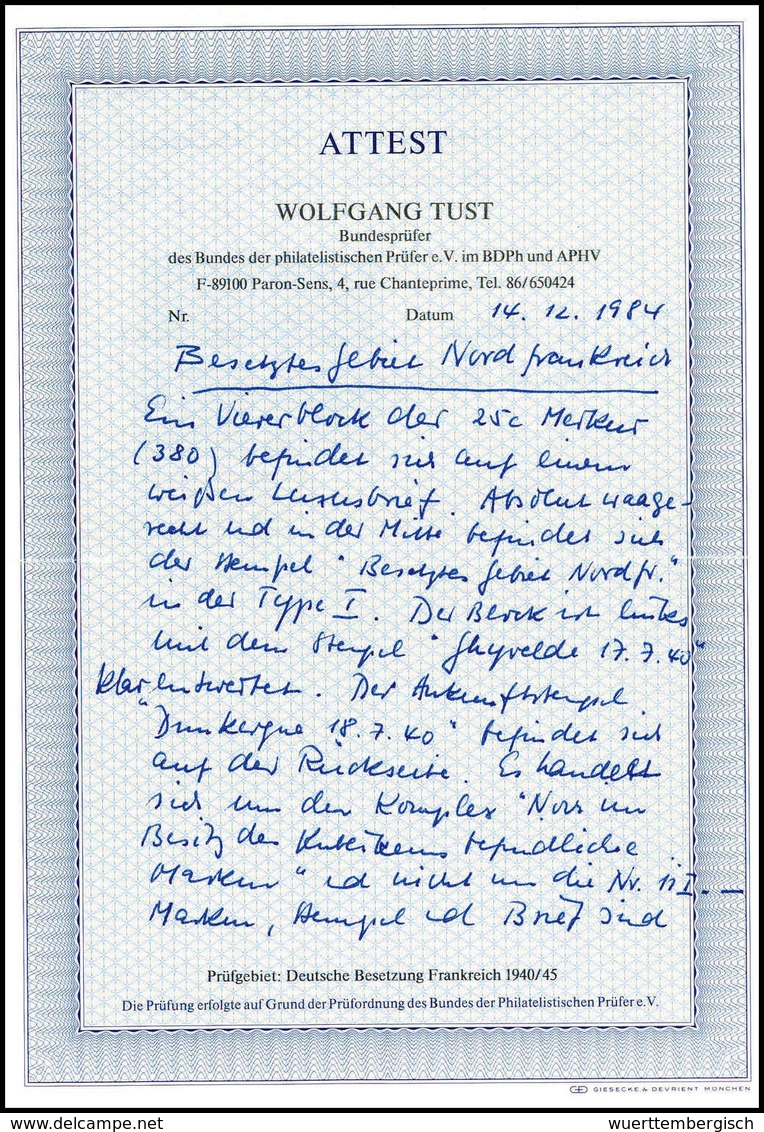 ATTEST
WOLFGANG TUST
Bundesprüfer
des Bundes der philatelistischen Prüfer e.V. im BDPh und APHV
F-89100 Paron-Sens, 4, rue Chanteprime, Tel. 86/650424
Nr. Datum 14. 12. 1984
Besetztes Gebiet Nordfrankreich
Ein Viererblock der 25c Merkur
(380) befindet sich auf einem
weißen Luxusbrief. Absolut waage-
recht und in der Mitte befindet sich
der Stempel "Besetztes Gebiet Nordfr."
in der Type I. Der Block ist links
mit dem Stempel "Ghyvelde 17.7.40"
klar entwertet. Der Ankunftsstempel
"Dunkerque 18.7.40" befindet sich
auf der Rückseite. Es handelt
sich um den Komplex "Nur im
Besitz des Publikums befindliche
Marken" und nicht um die Nr. 11 I. —
Marken, Stempel und Brief sind
Prüfgebiet: Deutsche Besetzung Frankreich 1940/45
Die Prüfung erfolgte auf Grund der Prüfordnung des Bundes der Philatelistischen Prüfer e.V.
GIESECKE & DEVRIENT MÜNCHEN
www.delcampe.net wuerttembergisch